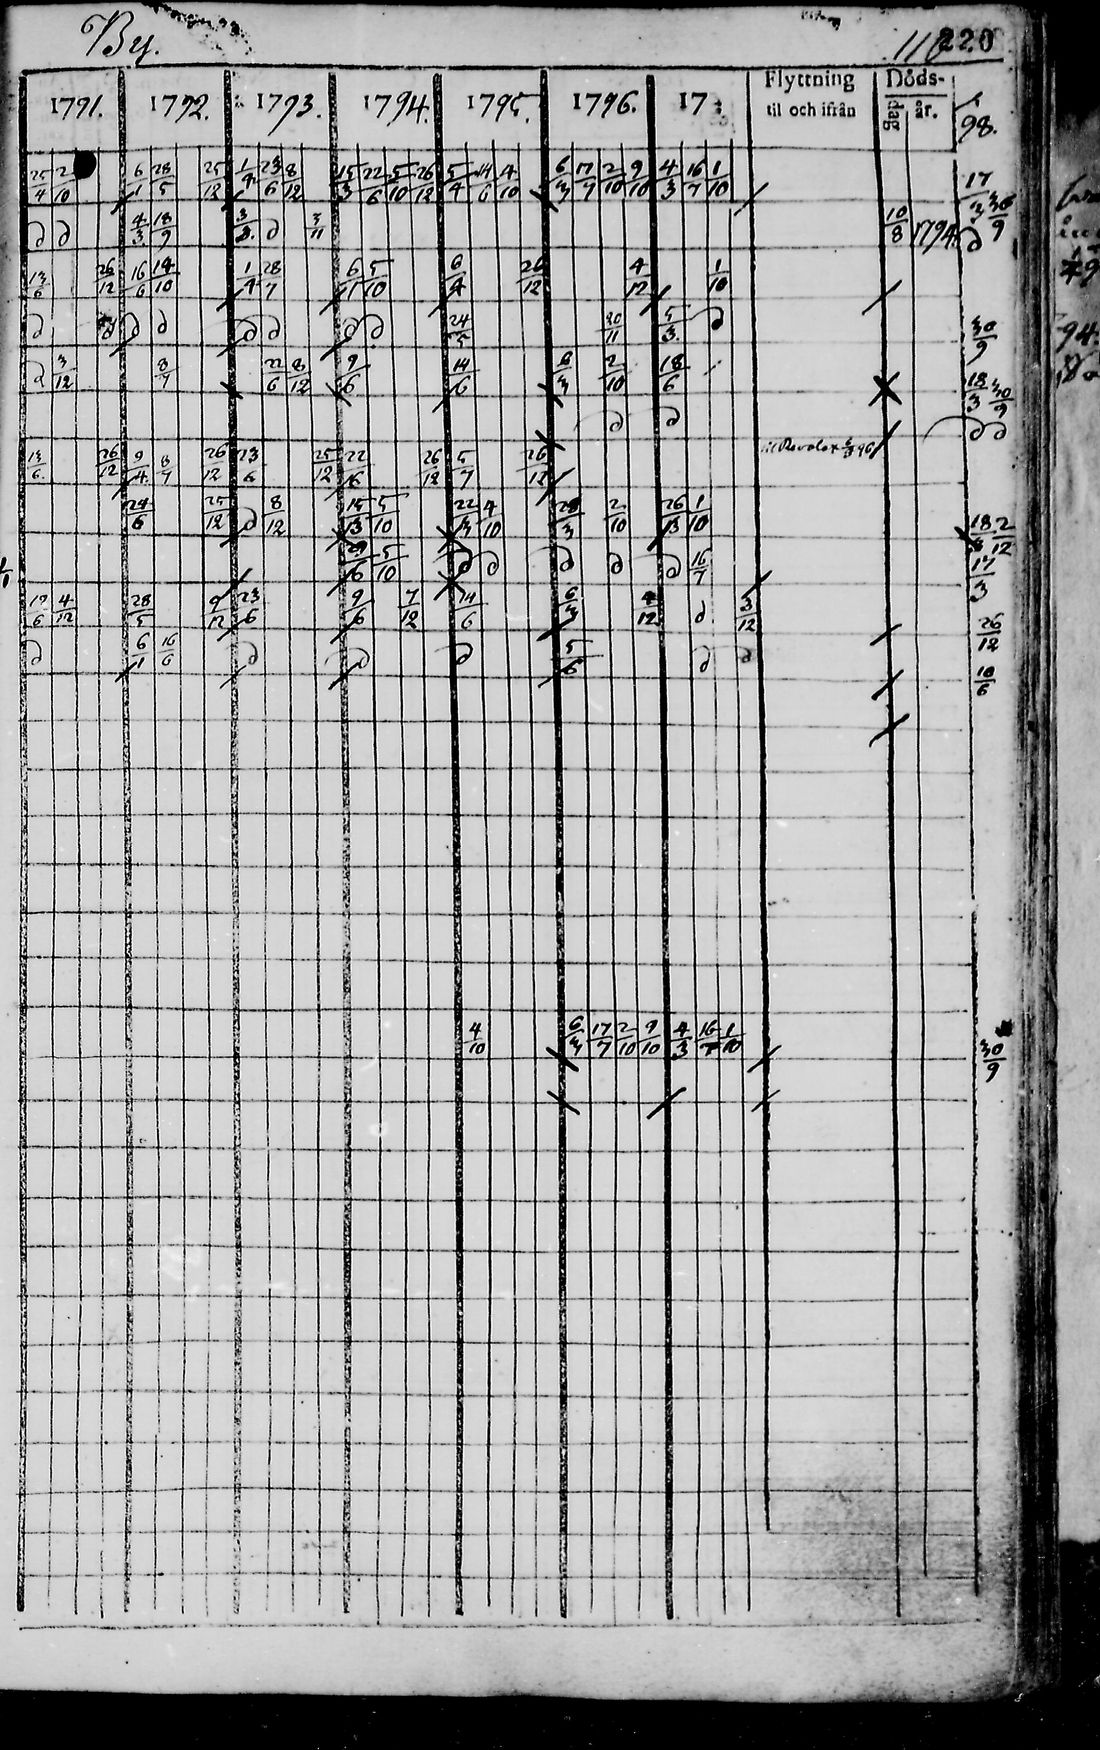 By.
220
1791. 1792. 1793. 1794. 1795. 1796. 17 Flyttning til och ifrån Döds- dag år. 98.
25/4 2/10 6/1 28/5 25/12 1/4 23/6 8/12 15/3 22/6 5/10 26/12 5/4 14/6 4/10 6/3 17/7 2/10 9/10 4/3 16/7 1/10 17/3 30/9
d d 4/3 18/9 3/3. d 3/11 10/8 1794. d
13/6 26/12 16/6 14/10 1/4 28/7 6/1 5/10 6/4 26/12 4/12 1/10
d d d d d d d 24/5 30/11 5/3. d 30/9
d 3/12 8/7 22/6 8/12 9/6 14/6 6/3 2/10 18/6 18/3 30/9
d d d d
13/6. 26/12 9/4 8/7 26/12 23/6 25/12 22/6 26/12 5/7 26/12
24/6 25/12 d 8/12 15/3 5/10 22/3 4/10 28/3 2/10 26/3 1/10 18/3 2/12
29/6 5/10 d d d d d 16/7 17/3
19/6 4/12 28/5 9/12 23/6 9/6 7/12 14/6 6/3 4/12 d 3/12 26/12
d 6/1 16/6 d d d 5/6 d d 18/6
4/10 6/3 17/7 2/10 9/10 4/3 16/7 1/10 30/9
94.